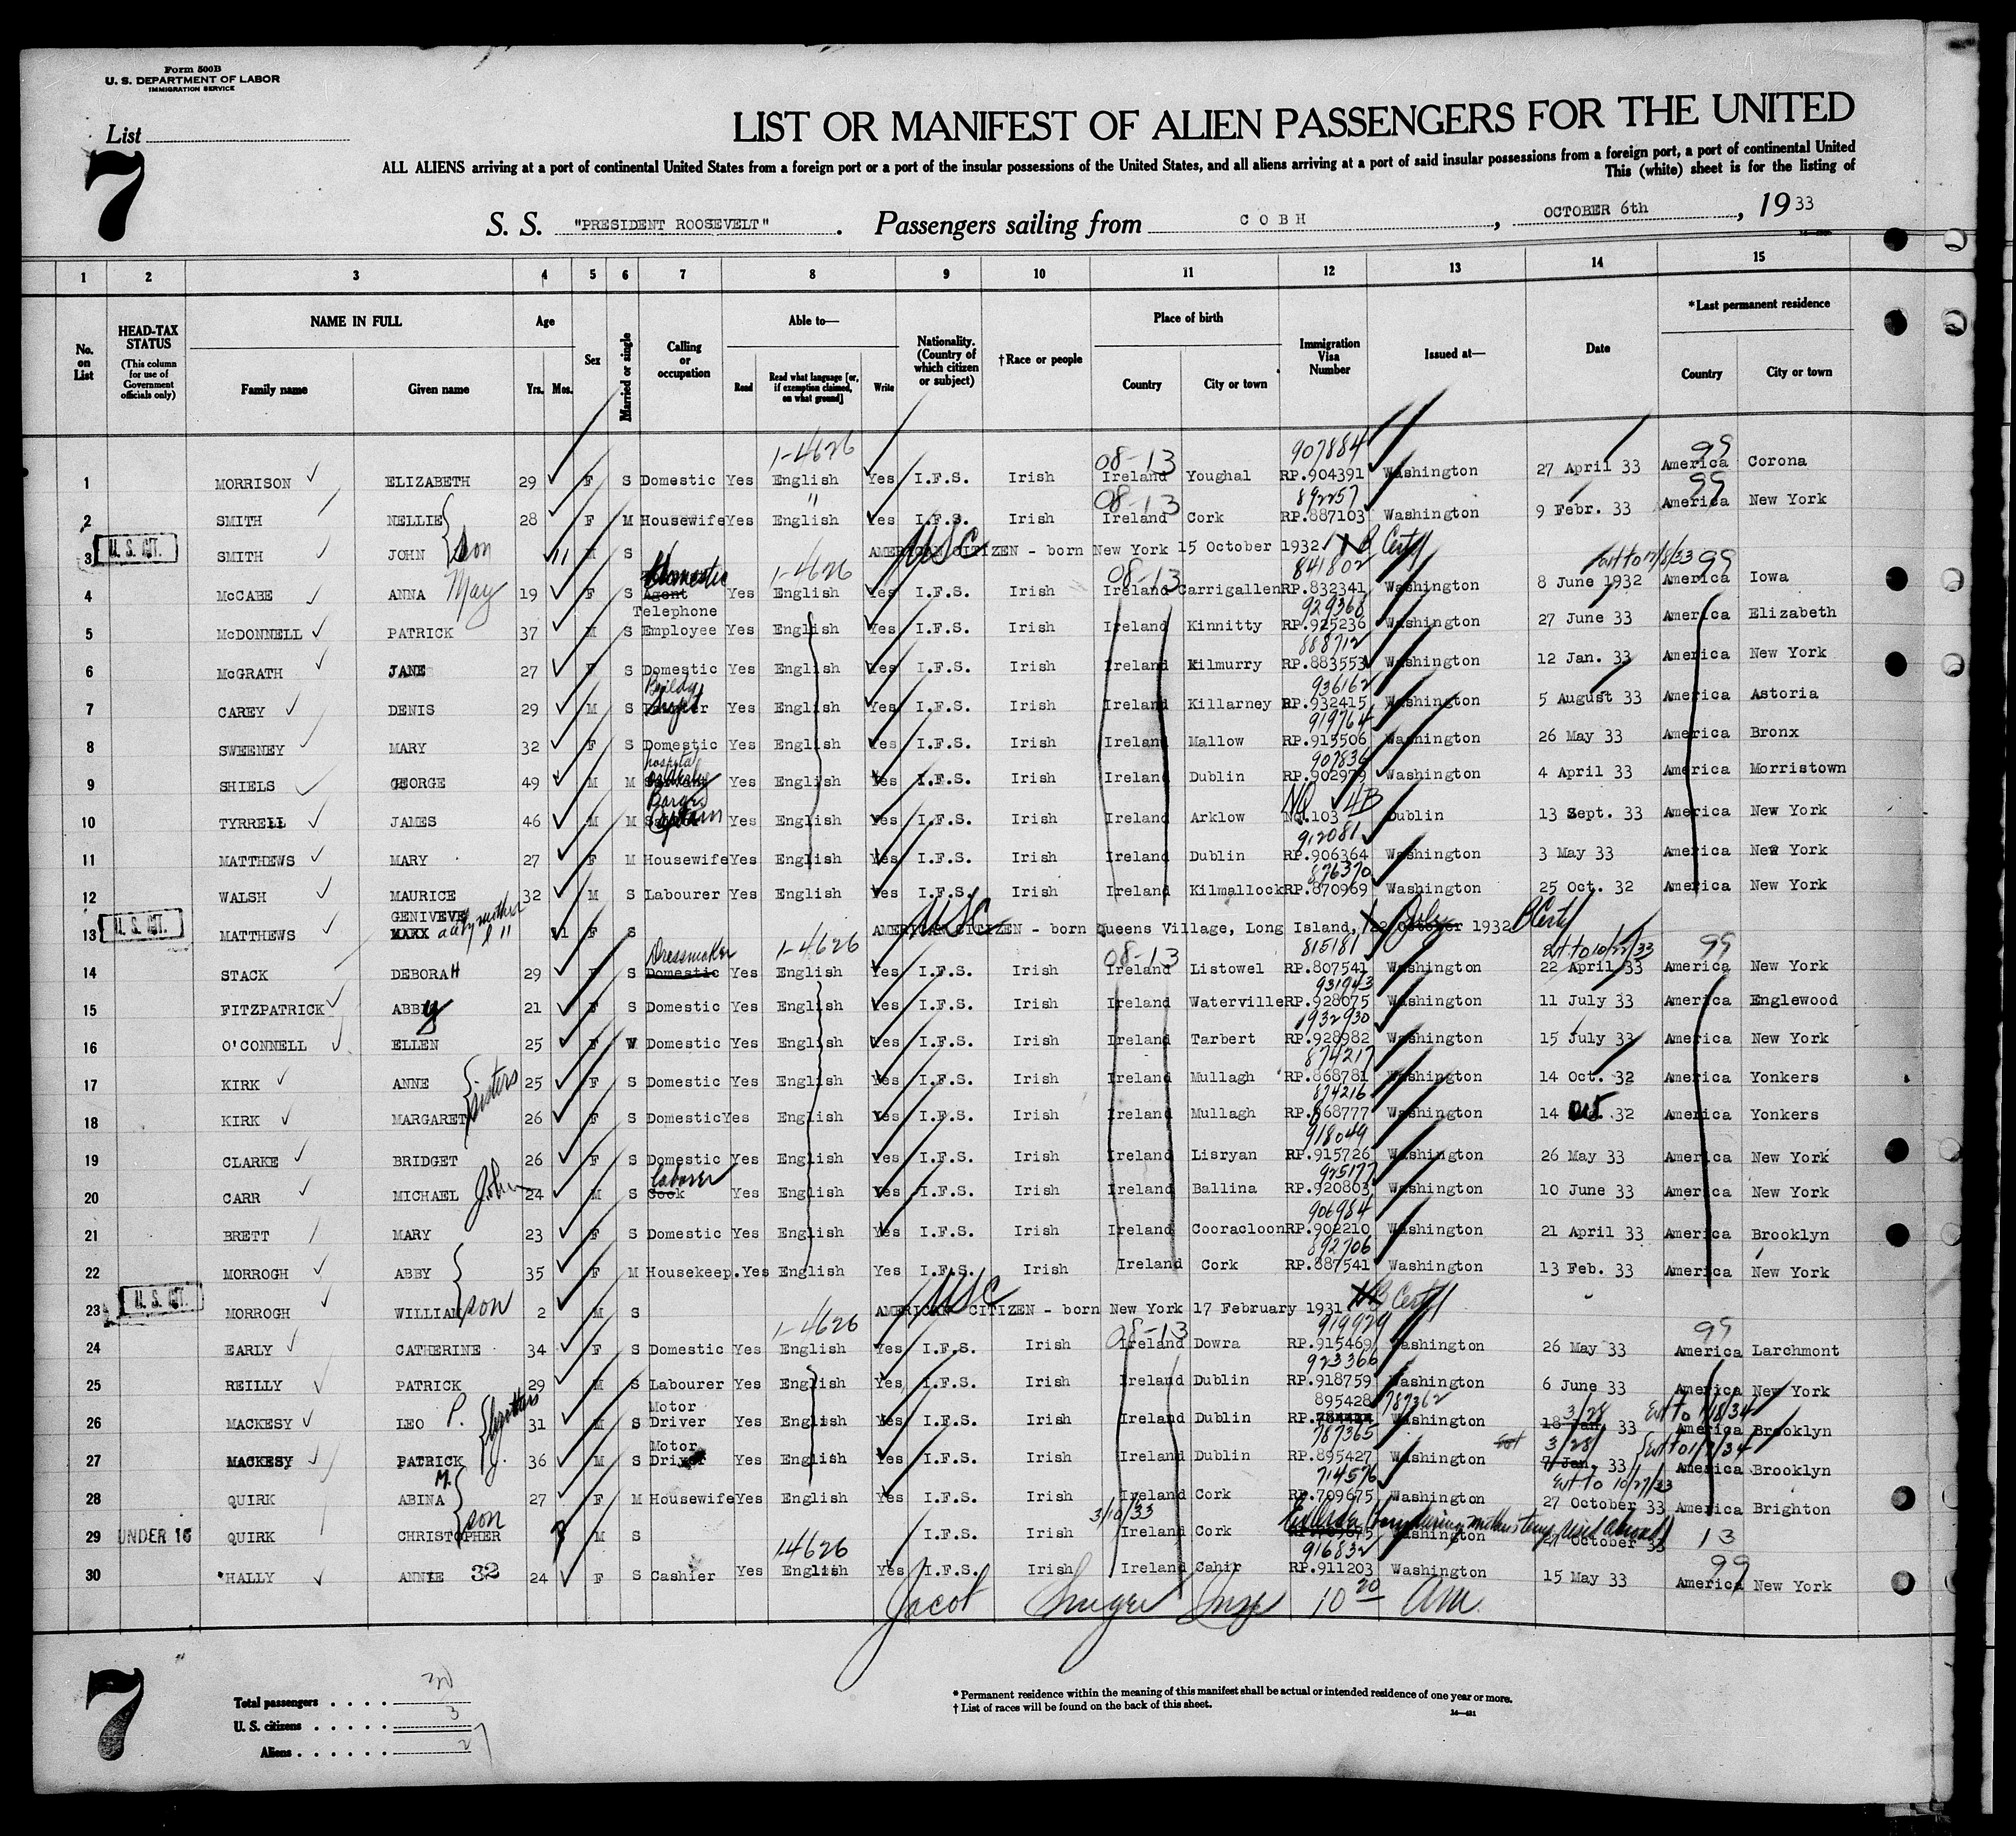 Form 500B
U. S. DEPARTMENT OF LABOR
IMMIGRATION SERVICE
List
7
LIST OR MANIFEST OF ALIEN PASSENGERS FOR THE UNITED
ALL ALIENS arriving at a port of continental United States from a foreign port or a port of the insular possessions of the United States, and all aliens arriving at a port of said insular possessions from a foreign port, a port of continental United
This (white) sheet is for the listing of
S. S. "PRESIDENT ROOSEVELT". Passengers sailing from COBH, OCTOBER 6th, 1933
1 2 3 4 5 6 7 8 9 10 11 12 13 14 15
No. on List
HEAD-TAX STATUS (This column for use of Government officials only)
NAME IN FULL Family name Given name
Age Yrs. Mos.
Sex
Married or single
Calling or occupation
Able to— Read Read what language [or, if exemption claimed, on what ground] Write
Nationality. (Country of which citizen or subject)
†Race or people
Place of birth Country City or town
Immigration Visa Number
Issued at—
Date
*Last permanent residence Country City or town
1-4626 08-13 907884 99
1 MORRISON ELIZABETH 29 F S Domestic Yes English Yes I.F.S. Irish Ireland Youghal RP.904391 Washington 27 April 33 America Corona
" 08-13 892257 99
2 SMITH NELLIE 28 F M Housewife Yes English Yes I.F.S. Irish Ireland Cork RP.887103 Washington 9 Febr. 33 America New York
3 U. S. CIT. SMITH JOHN son 11 M S AMERICAN CITIZEN - born New York 15 October 1932 USC B Cert
Domestic 1-4626 08-13 841802 Ext to 12/8/33 99
4 McCABE ANNA May 19 F S Agent Yes English Yes I.F.S. Irish Ireland Carrigallen RP.832341 Washington 8 June 1932 America Iowa
Telephone 929368
5 McDONNELL PATRICK 37 M S Employee Yes English Yes I.F.S. Irish Ireland Kinnitty RP.925236 Washington 27 June 33 America Elizabeth
888712
6 McGRATH JANE 27 F S Domestic Yes English Yes I.F.S. Irish Ireland Kilmurry RP.883553 Washington 12 Jan. 33 America New York
936162
7 CAREY DENIS 29 M S Yes English Yes I.F.S. Irish Ireland Killarney RP.932415 Washington 5 August 33 America Astoria
919764
8 SWEENEY MARY 32 F S Domestic Yes English Yes I.F.S. Irish Ireland Mallow RP.915506 Washington 26 May 33 America Bronx
hospital 907836
9 SHIELS GEORGE 49 M M Yes English Yes I.F.S. Irish Ireland Dublin RP.902979 Washington 4 April 33 America Morristown
Barge NQ 4B
10 TYRRELL JAMES 46 M M Captain Yes English Yes I.F.S. Irish Ireland Arklow NQ.103 Dublin 13 Sept. 33 America New York
912081
11 MATTHEWS MARY 27 F M Housewife Yes English Yes I.F.S. Irish Ireland Dublin RP.906364 Washington 3 May 33 America New York
876370
12 WALSH MAURICE 32 M S Labourer Yes English Yes I.F.S. Irish Ireland Kilmallock RP.870969 Washington 25 Oct. 32 America New York
GENIVEVE
13 U. S. CIT. MATTHEWS MARY 11 F S AMERICAN CITIZEN - born Queens Village, Long Island, 22 October 1932 USC July B Cert
Dressmaker 1-4626 08-13 815181 Ext to 10/22/33 99
14 STACK DEBORAH 29 F S Domestic Yes English Yes I.F.S. Irish Ireland Listowel RP.807541 Washington 22 April 33 America New York
931943
15 FITZPATRICK ABBY 21 F S Domestic Yes English Yes I.F.S. Irish Ireland Waterville RP.928075 Washington 11 July 33 America Englewood
932930
16 O'CONNELL ELLEN 25 F W Domestic Yes English Yes I.F.S. Irish Ireland Tarbert RP.928982 Washington 15 July 33 America New York
874217
17 KIRK ANNE sisters 25 F S Domestic Yes English Yes I.F.S. Irish Ireland Mullagh RP.868781 Washington 14 Oct. 32 America Yonkers
874216
18 KIRK MARGARET 26 F S Domestic Yes English Yes I.F.S. Irish Ireland Mullagh RP.868777 Washington 14 Oct. 32 America Yonkers
918049
19 CLARKE BRIDGET 26 F S Domestic Yes English Yes I.F.S. Irish Ireland Lisryan RP.915726 Washington 26 May 33 America New York
Laborer 925177
20 CARR MICHAEL John 24 M S Cook Yes English Yes I.F.S. Irish Ireland Ballina RP.920803 Washington 10 June 33 America New York
906984
21 BRETT MARY 23 F S Domestic Yes English Yes I.F.S. Irish Ireland Cooracloon RP.902210 Washington 21 April 33 America Brooklyn
892706
22 MORROGH ABBY 35 F M Housekeep. Yes English Yes I.F.S. Irish Ireland Cork RP.887541 Washington 13 Feb. 33 America New York
23 U. S. CIT. MORROGH WILLIAM son 2 M S AMERICAN CITIZEN - born New York 17 February 1931 USC B Cert
1-4626 08-13 919979 99
24 EARLY CATHERINE 34 F S Domestic Yes English Yes I.F.S. Irish Ireland Dowra RP.915469 Washington 26 May 33 America Larchmont
923366
25 REILLY PATRICK 29 M S Labourer Yes English Yes I.F.S. Irish Ireland Dublin RP.918759 Washington 6 June 33 America New York
Motor 895428 787362 3/28 Ext to 1/18/34
26 MACKESY LEO P. brothers 31 M S Driver Yes English Yes I.F.S. Irish Ireland Dublin RP. Washington 18 Jan. 33 America Brooklyn
Motor 787365 3/28 Ext to 1/7/34
27 MACKESY PATRICK J. 36 M S Driver Yes English Yes I.F.S. Irish Ireland Dublin RP.895427 Washington 7 Jan. 33 America Brooklyn
M. 714576 Ext to 10/27/33
28 QUIRK ABINA 27 F M Housewife Yes English Yes I.F.S. Irish Ireland Cork RP.709675 Washington 27 October 33 America Brighton
3/10/33
29 UNDER 16 QUIRK CHRISTOPHER son M S I.F.S. Irish Ireland Cork Washington October 33 13
1-4626 916832 99
30 HALLY ANNIE 32 24 F S Cashier Yes English Yes I.F.S. Irish Ireland Cahir RP.911203 Washington 15 May 33 America New York
10 20 AM
7
Total passengers . . . . 30
U. S. citizens . . . . . 3
Aliens . . . . . . 27
* Permanent residence within the meaning of this manifest shall be actual or intended residence of one year or more.
† List of races will be found on the back of this sheet.